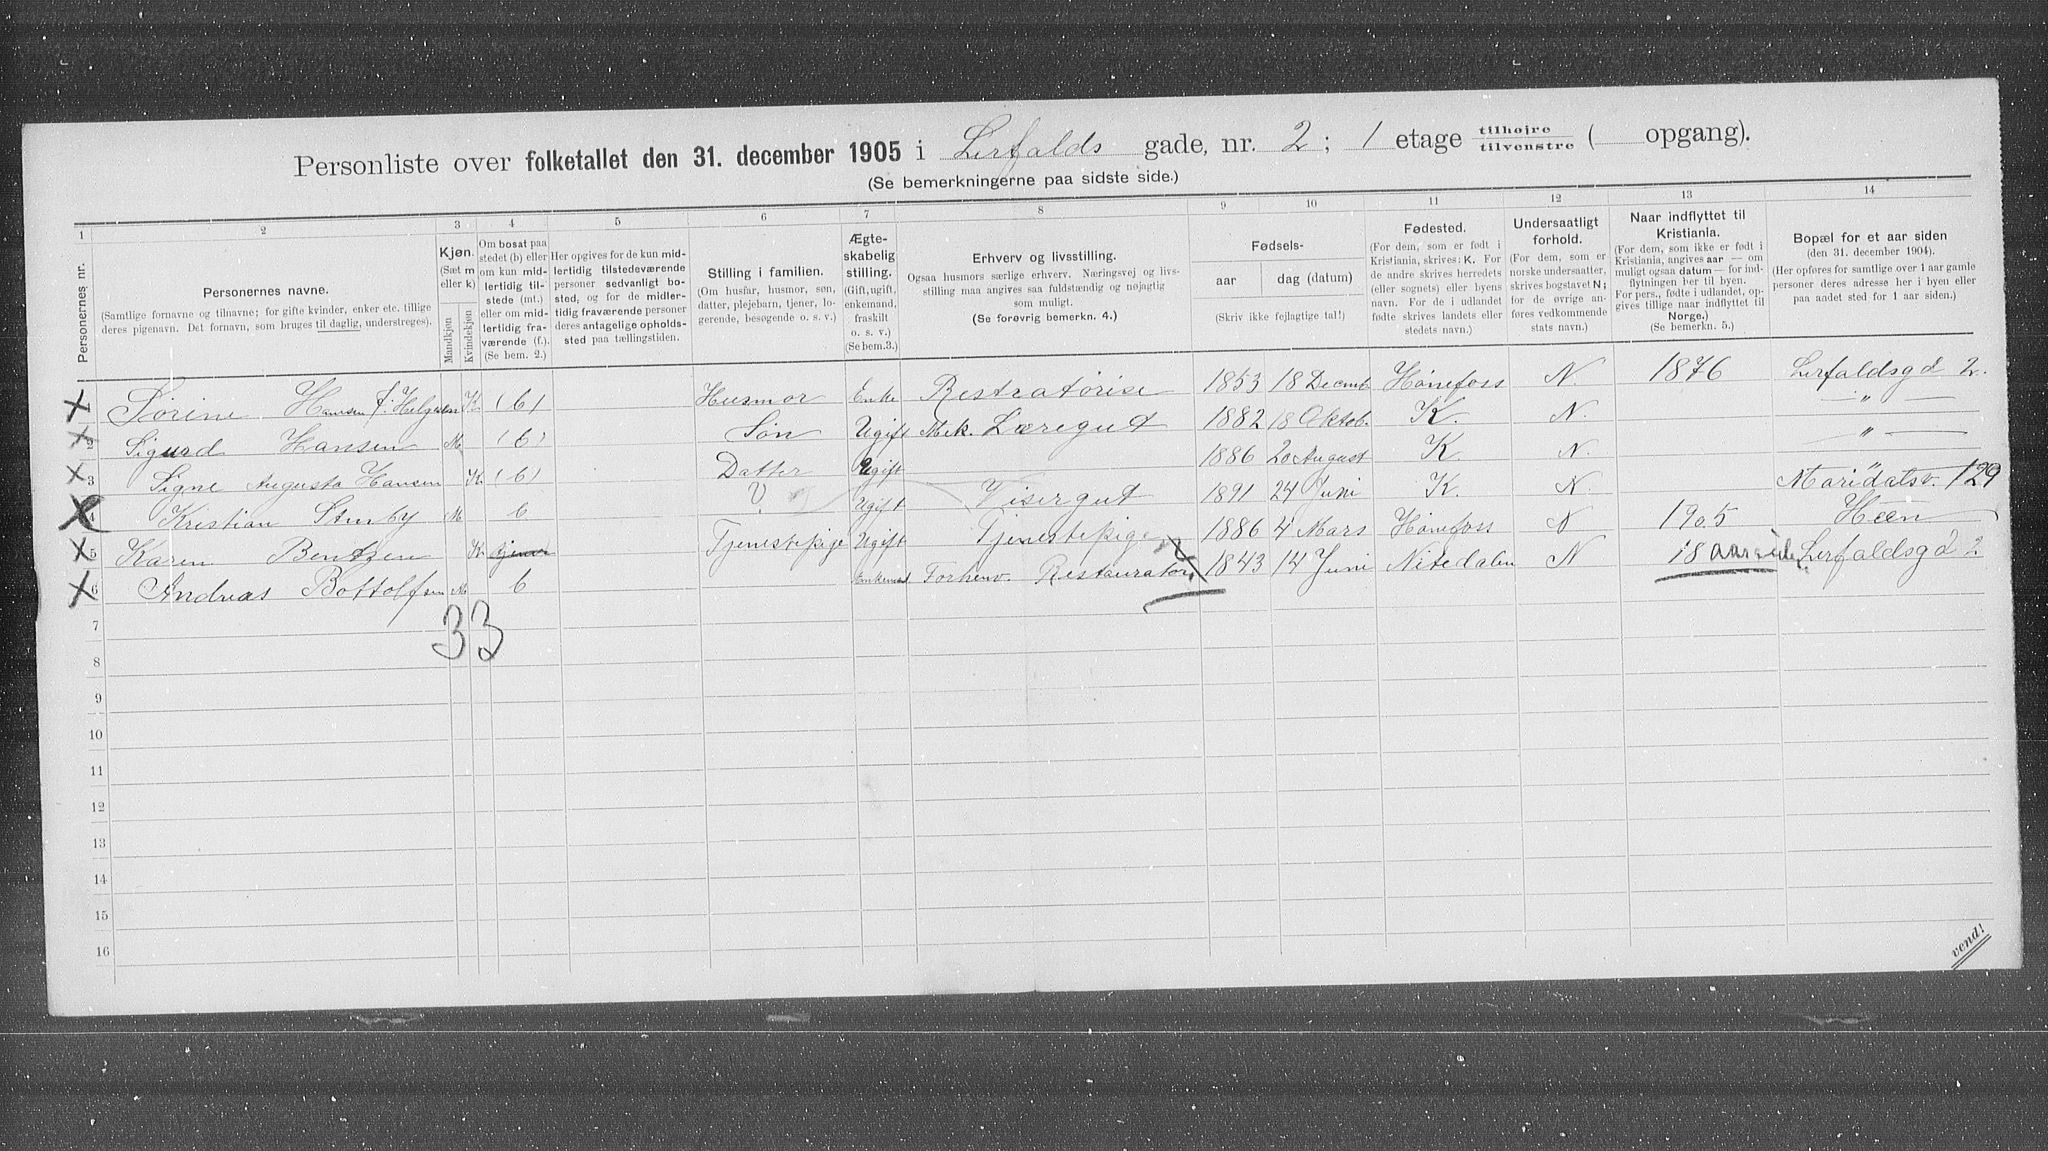 Personliste over folketallet den 31. december 1905 i Lerfalds gade, nr. 2; 1 etage tilhøjre tilvenstre ( opgang).
(Se bemerkningerne paa sidste side.)
1 2 3 4 5 6 7 8 9 10 11 12 13 14
Personernes nr.
Personernes navne.
(Samtlige fornavne og tilnavne; for gifte kvinder, enker etc. tillige
deres pigenavn. Det fornavn, som bruges til daglig, understreges).
Kjøn.
(Sæt m
eller k)
Mandkjøn
Kvindekjøn
Om bosat paa
stedet (b) eller
om kun mid-
lertidig til-
stede (mt.)
eller om mid-
lertidig fra-
værende (f.).
(Se bem. 2.)
Her opgives for de kun mid-
lertidig tilstedeværende
personer sedvanligt bo-
sted, og for de midler-
tidig fraværende personer
deres antagelige opholds-
sted paa tællingstiden.
Stilling i familien.
(Om husfar, husmor, søn,
datter, plejebarn, tjener, lo-
gerende, besøgende o. s. v.)
Ægte-
skabelig
stilling.
(Gift, ugift,
enkemand,
fraskilt
o. s. v.)
(Se bem.3.)
Erhverv og livsstilling.
Ogsaa husmors særlige erhverv. Næringsvej og livs-
stilling maa angives saa fuldstændig og nøjagtig
som muligt.
(Se forøvrig bemerkn. 4.)
Fødsels-
aar dag (datum)
(Skriv ikke fejlagtige tal!)
Fødested.
(For dem, som er født i
Kristiania, skrives: K. For
de andre skrives herredets
(eller sognets) eller byens
navn. For de i udlandet
fødte skrives landets eller
stedets navn.)
Undersaatligt
forhold.
(For dem, som er
norske undersaatter,
skrives bogstavet N;
for de øvrige an-
føres vedkommende
stats navn.)
Naar indflyttet til
Kristiania.
(For dem, som ikke er født i
Kristiania, angives aar — om
muligt ogsaa datum — for ind-
flytningen her til byen.
For pers., fødte i udlandet, op-
gives tillige naar indflyttet til
Norge.)
(Se bemerkn. 5.)
Bopæl for et aar siden
(den 31. december 1904).
(Her opføres for samtlige over 1 aar gamle
personer deres adresse her i byen eller
paa andet sted for 1 aar siden.)
Sørine Hansen f. Helgesen K (b) Husmor Enke Restratørise 1853 18 Decmb Hønefoss N. 1876 Lerfaldsgd 2.
2 Sigurd Hansen M (b) Søn Ugift Mek. Læregut 1882 18 Oktob. K. N. — " —
3 Signe Augusta Hansen K. (b) Datter Ugift 1886 20 August K N. — " —
4 Kristian M b Ugift Visergut 1891 24 Juni K. N. Maridalsv. 129
5 Karen Bentzen K tjener Tjenestepige Ugift Tjenestepige 1886 4 Mars Hønefoss N 1905 Heen
6 Andreas Bottolfsen M b Enkemd Forhenv. Restauratør 1843 14 Juni Nitedalen N 18 aar siden Lerfaldsgd 2
33
7
8
9
10
11
12
13
14
15
16
vend!